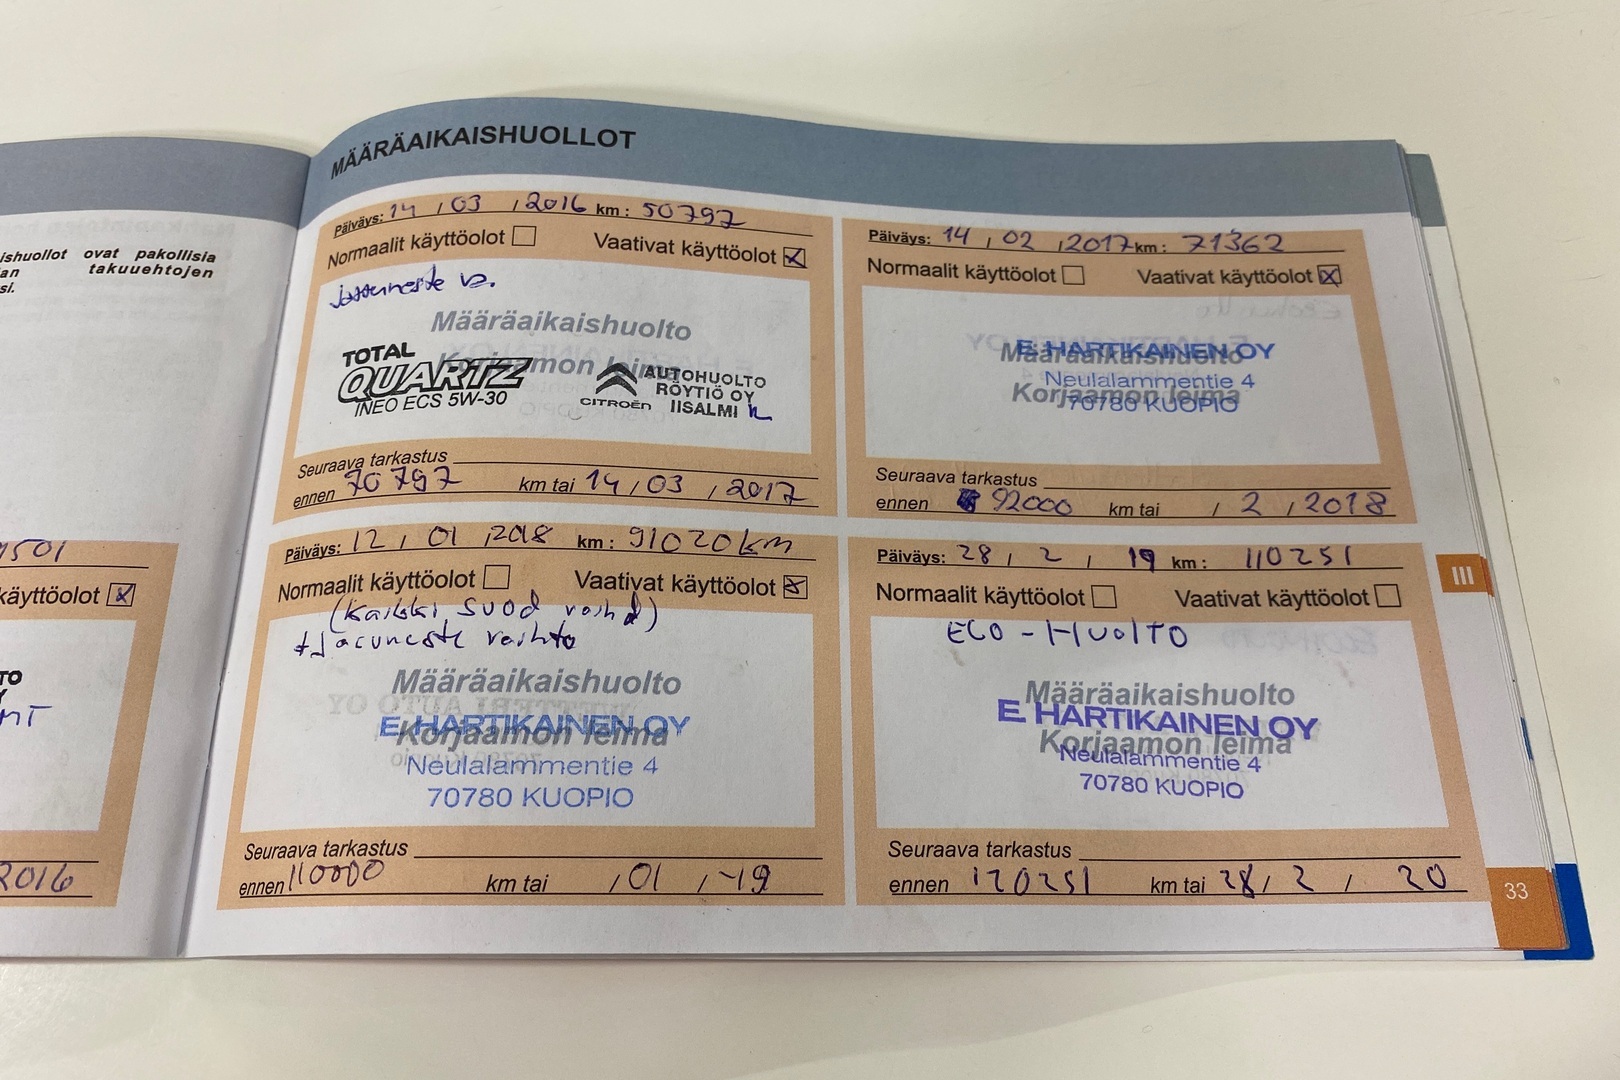 MÄÄRÄAIKAISHUOLLOT
ishuollot ovat pakollisia
an takuuehtojen
si.
1501
käyttöolot x
TO
Y
2016
Päiväys: 14 / 03 / 2016 km: 50797
Normaalit käyttöolot Vaativat käyttöolot x
Määräaikaishuolto
Korjaamon leima
TOTAL
QUARTZ
INEO ECS 5W-30
CITROËN
AUTOHUOLTO
RÖYTIÖ OY
IISALMI
Seuraava tarkastus
ennen 70797 km tai 14 / 03 / 2017
Päiväys: 14 / 02 / 2017 km: 71362
Normaalit käyttöolot Vaativat käyttöolot x
Määräaikaishuolto
Korjaamon leima
E. HARTIKAINEN OY
Neulalammentie 4
70780 KUOPIO
Seuraava tarkastus
ennen 92000 km tai / 2 / 2018
Päiväys: 12 / 01 / 2018 km: 91020 km
Normaalit käyttöolot Vaativat käyttöolot x
(Kaikki suod vaihd)
+ Jarruneste vaihto
Määräaikaishuolto
Korjaamon leima
E. HARTIKAINEN OY
Neulalammentie 4
70780 KUOPIO
Seuraava tarkastus
ennen 110000 km tai / 01 / -19
Päiväys: 28 / 2 / 19 km: 110251
Normaalit käyttöolot Vaativat käyttöolot
ECO-HUOLTO
Määräaikaishuolto
Korjaamon leima
E. HARTIKAINEN OY
Neulalammentie 4
70780 KUOPIO
Seuraava tarkastus
ennen 120251 km tai 28 / 2 / 20
III
33